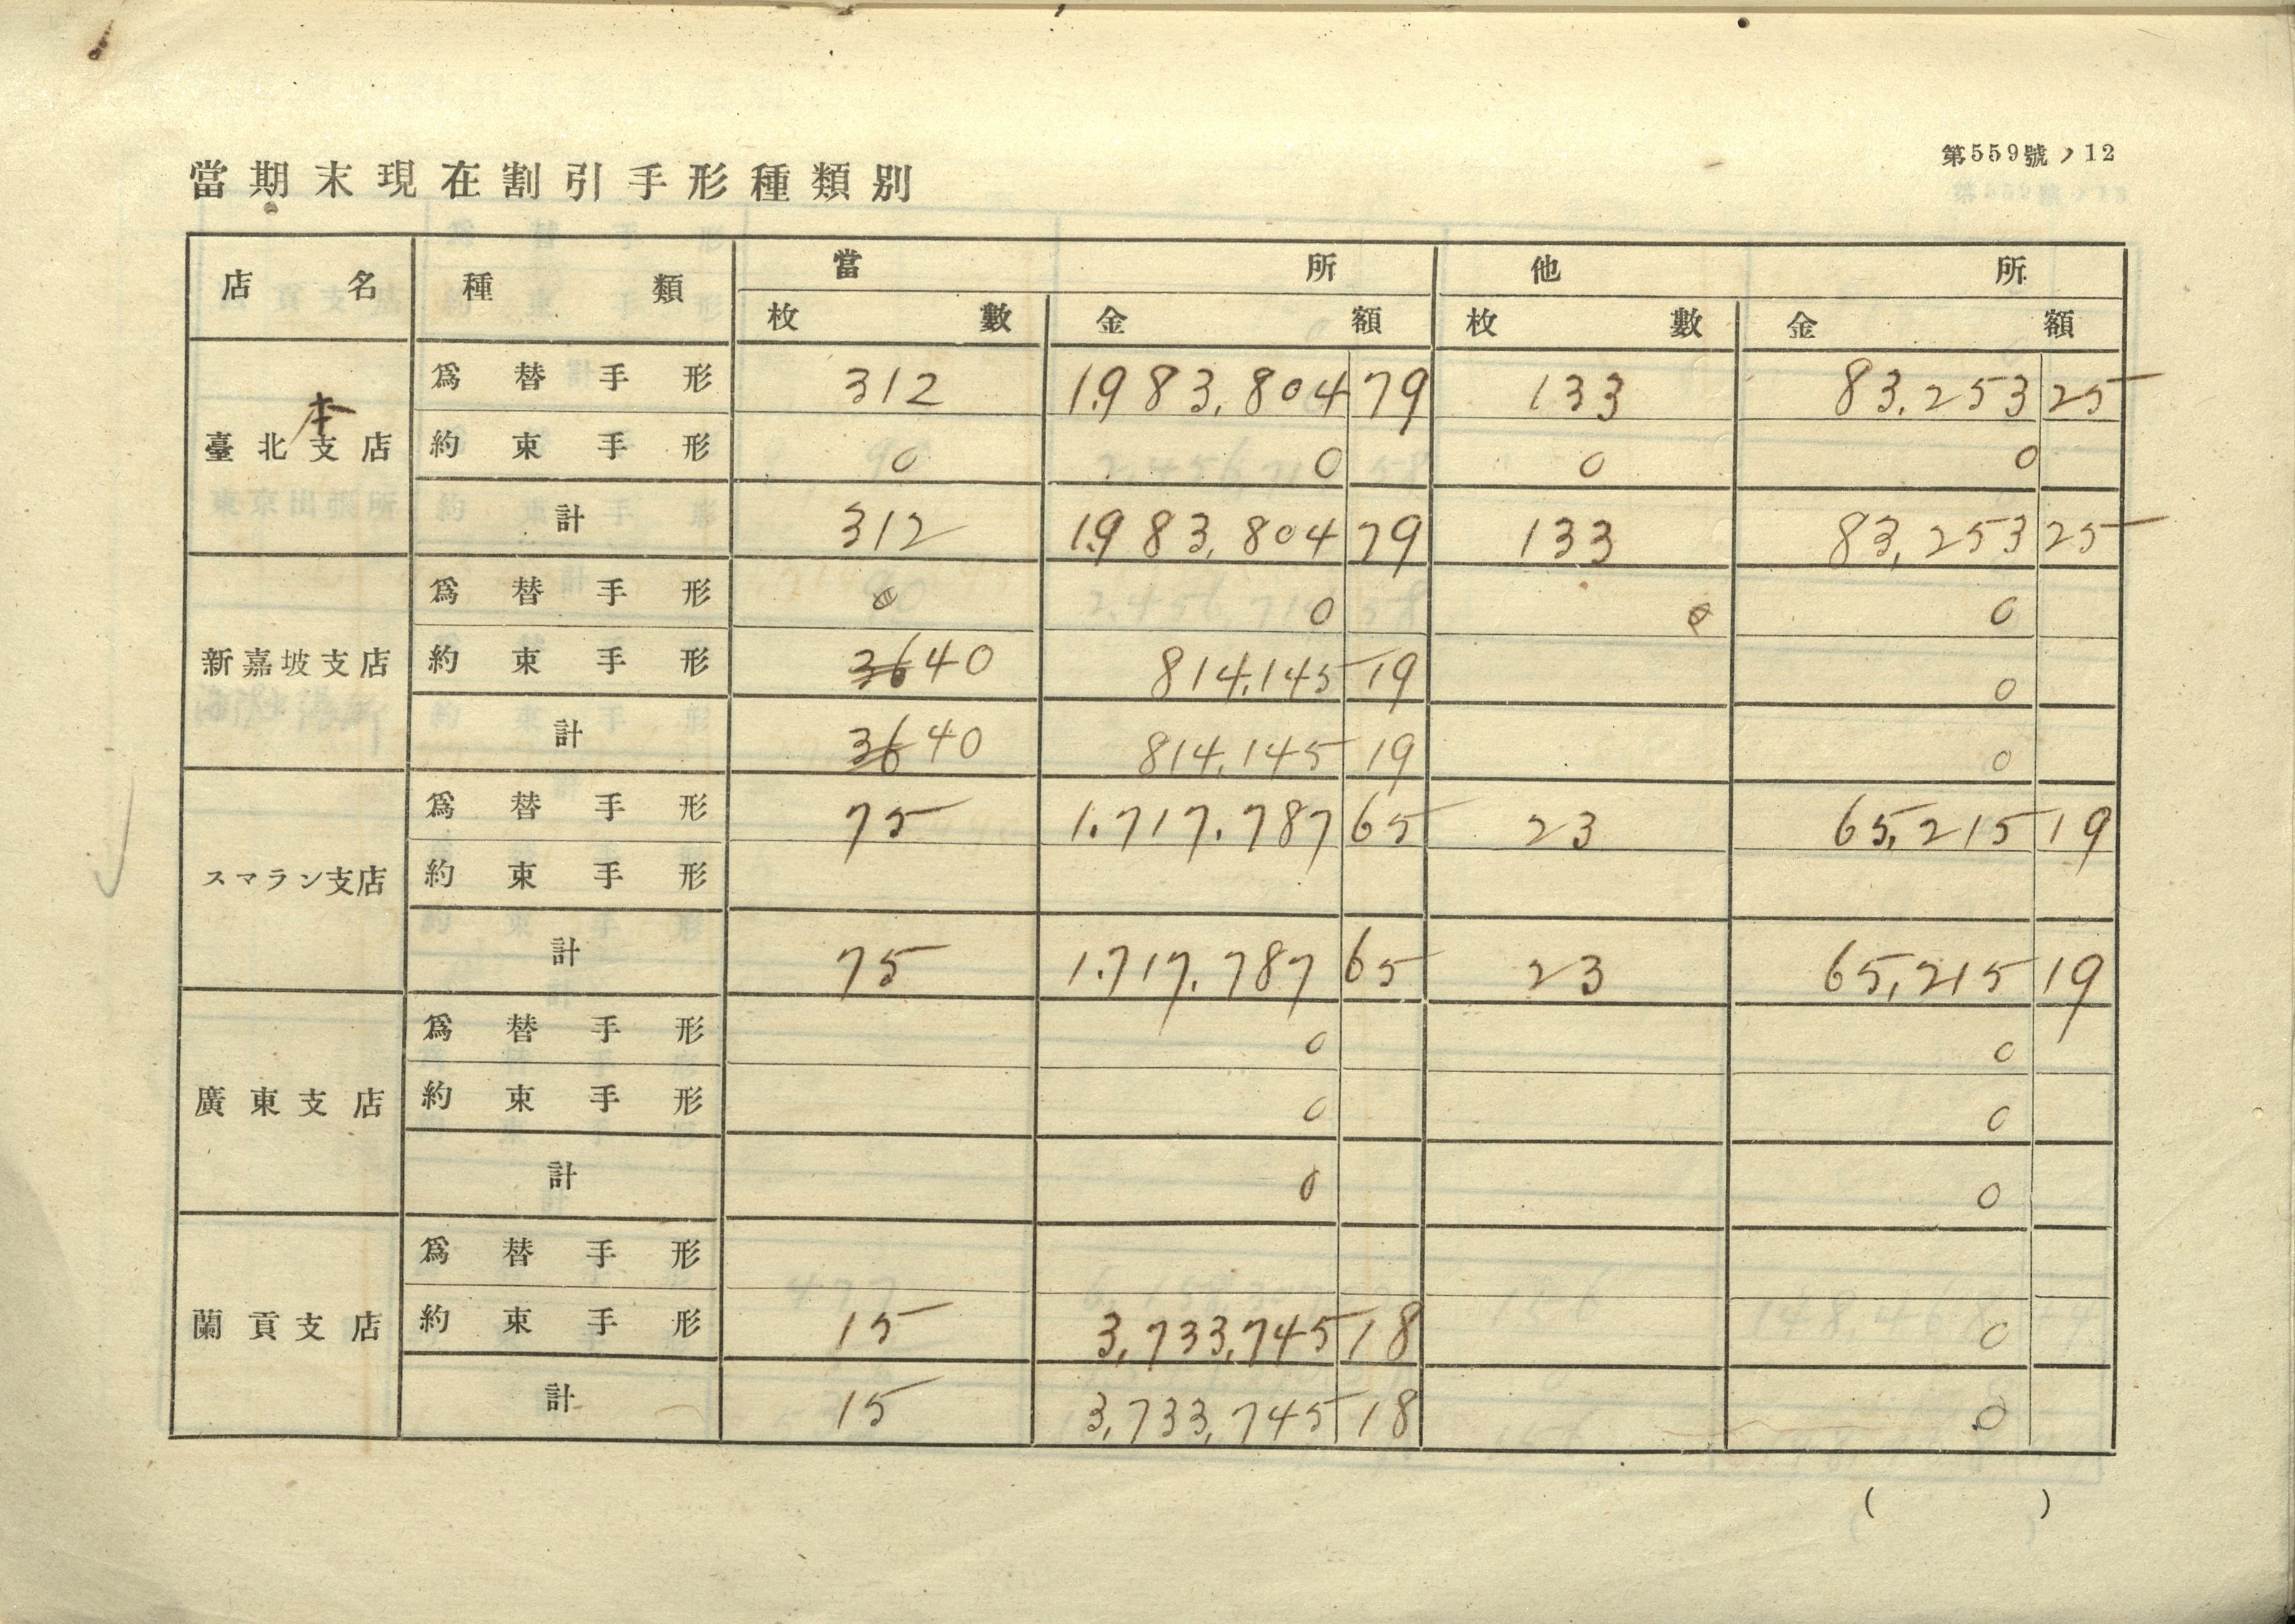 第559號ノ12
當期末現在割引手形種類別
店名 種類 當所 他所
枚數 金額 枚數 金額
爲替手形 312 1.983.804 79 133 83.253 25
本
臺北支店 約束手形 0 0 0 0
計 312 1.983.804 79 133 83,253 25
爲替手形 0 0 0 0
新嘉坡支店 約束手形 36 40 814.145 19 0
計 36 40 814.145 19 0
爲替手形 75 1.717.787 65 23 65,215 19
スマラン支店 約束手形
計 75 1.717.787 65 23 65,215 19
爲替手形 0 0
廣東支店 約束手形 0 0
計 0 0
爲替手形
蘭貢支店 約束手形 15 3,733,745 18 0
計 15 3,733,745 18 0
( )